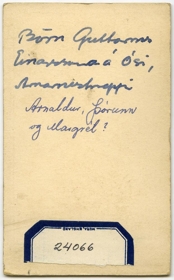 Börn Guttorms
Einarssonar á Ósi,
Arnarneshreppi
Arnaldur, Þórunn
og Margrét?
24066